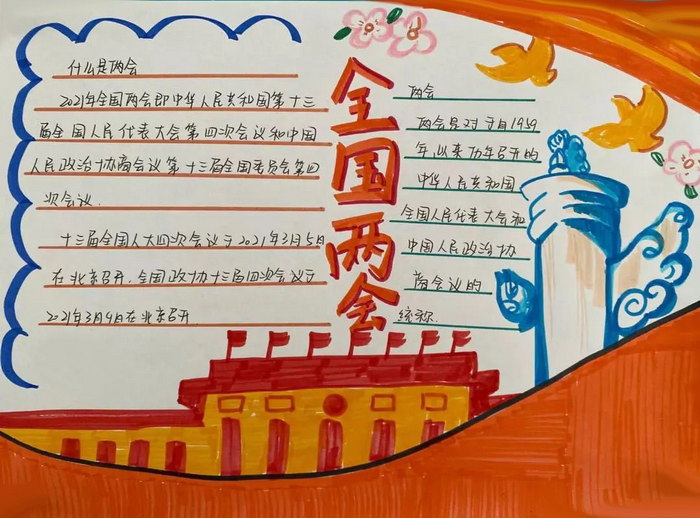 什么是两会
2021年全国两会即中华人民共和国第十三
届全国人民代表大会第四次会议和中国
人民政治协商会议第十三届全国委员会第四
次会议.
十三届全国人大四次会议于2021年3月5日
在北京召开.全国政协十三届四次会议于
2021年3月4日在北京召开
全国两会
两会
两会是对于自1959
年,以来历年召开的
中华人民共和国
全国人民代表大会和
中国人民政治协
商会议的
统称.